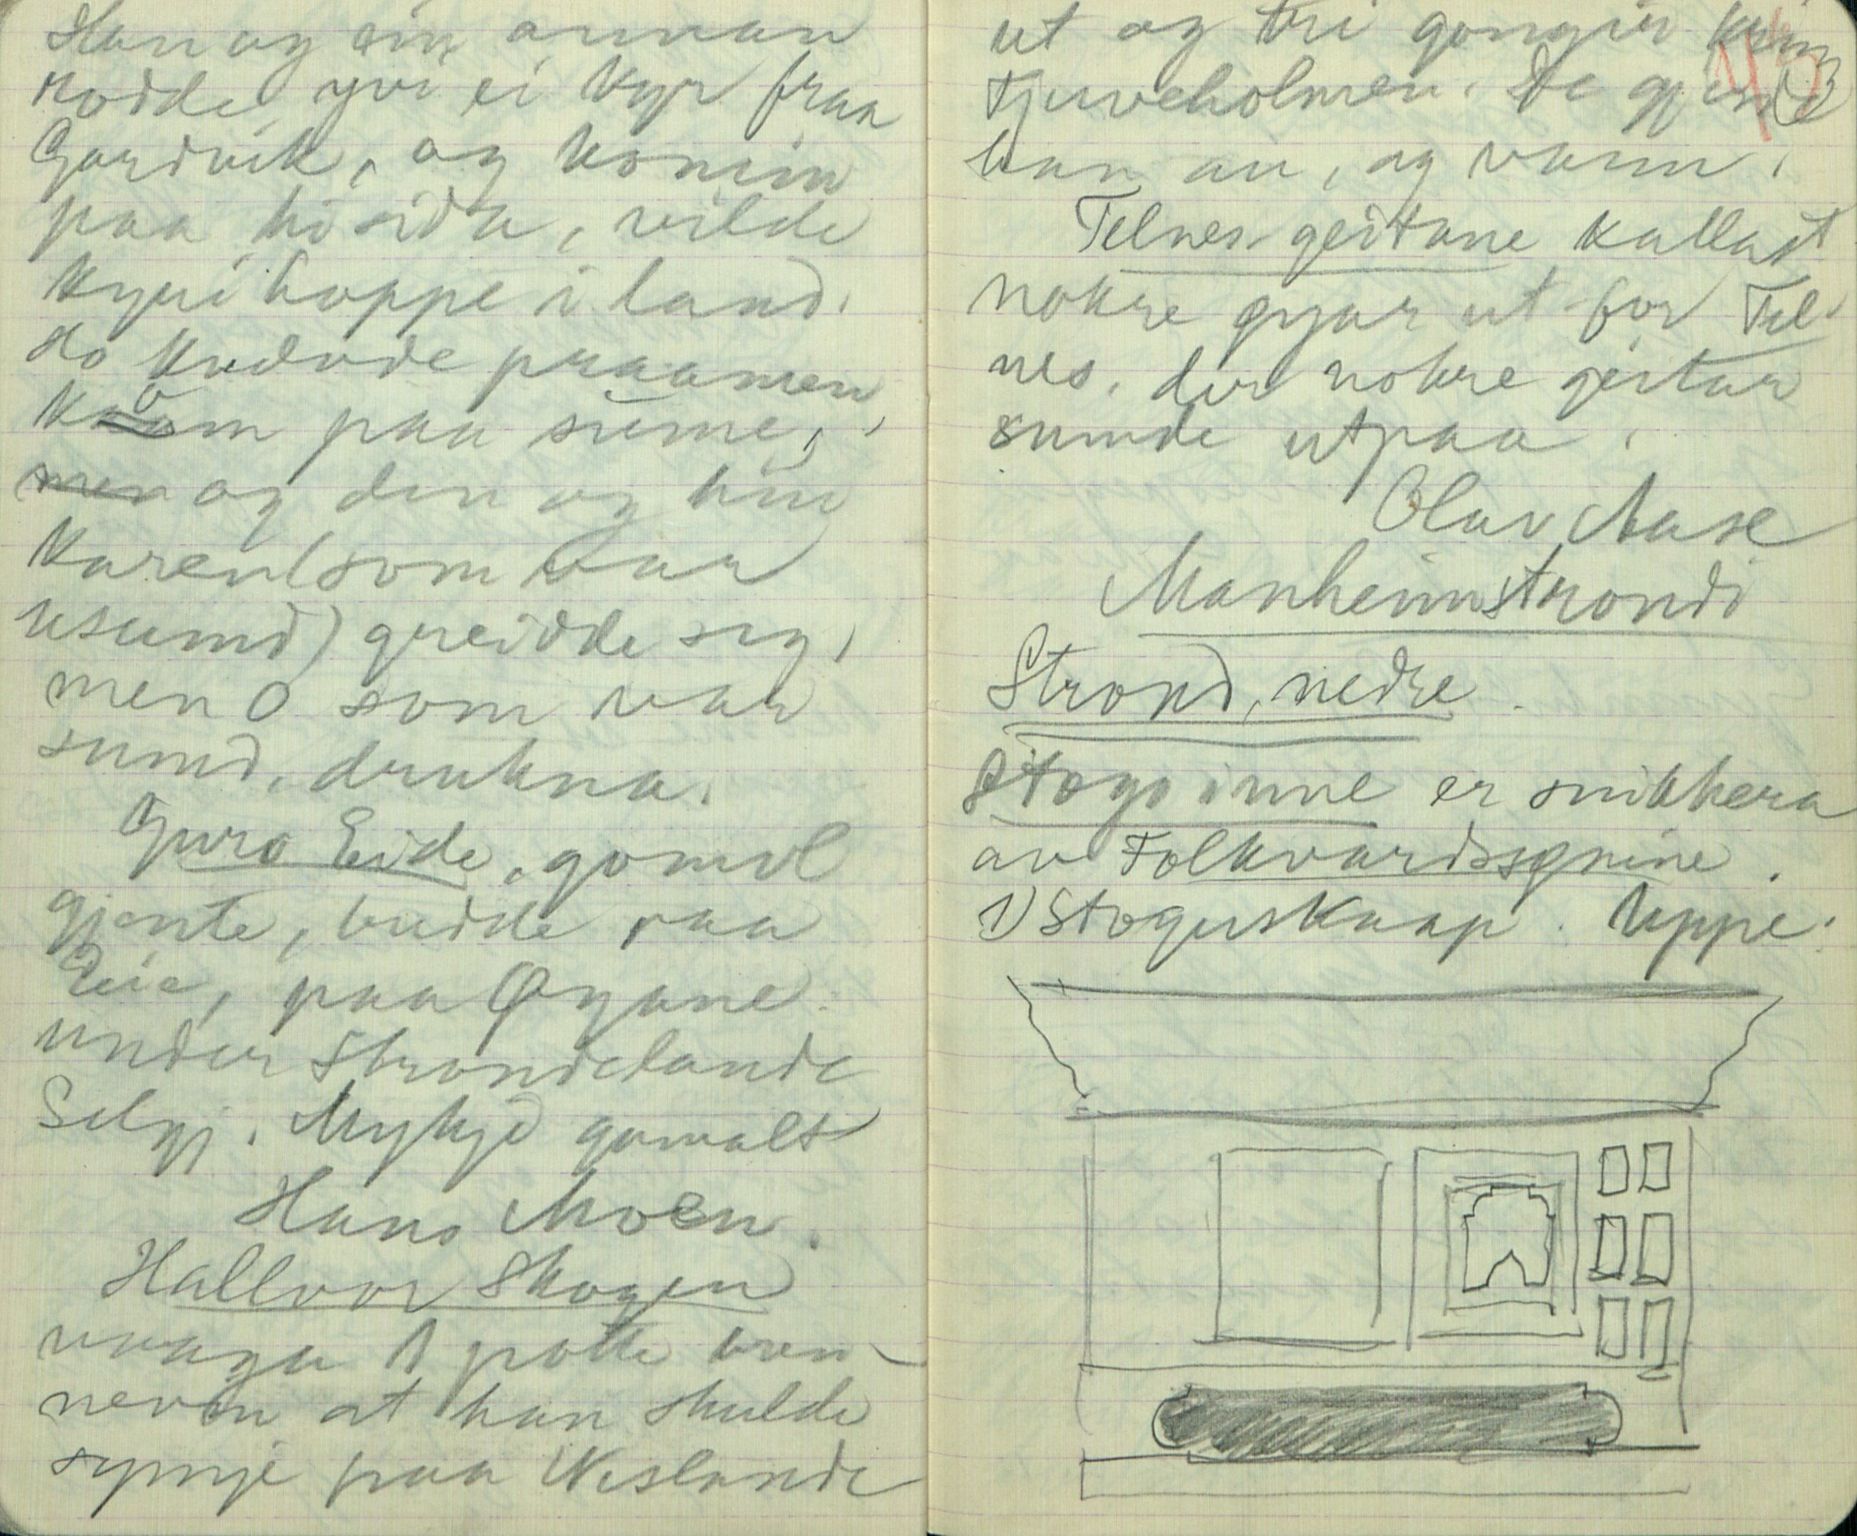 Han og ein annan
rodde yvi ei kyr fraa
Gardvik, og komin
paa hi sida, vilde
kyri hoppe i land.
Do kvelvde praamen
kom paa sume,
men og den og hin
karen (som var
usumd) greidde seg,
men O som var
sumd, drukna.
Guro Eide, gomol
gjente, budde paa
Eie, paa Øyane
under Strondelande
Selgj. Mykje gamalt
Hans Moen.
Hallvor Skogen
vaaga 1 potte bren-
nevin at han skulde
symje paa Veslande
ut og tri gonger kring
Tjuveholmen. De gjende
han au, og vann.
Telnes-geitane kallast
nokre øyar ut for Tel-
nes, der nokre geitar
sumde utpaa.
Olav Aase
Manheimstrondi
Strond, nedre.
Stogo inne er snikkera
av Folkvardsønine.
1) Stoguskaap. Uppe: